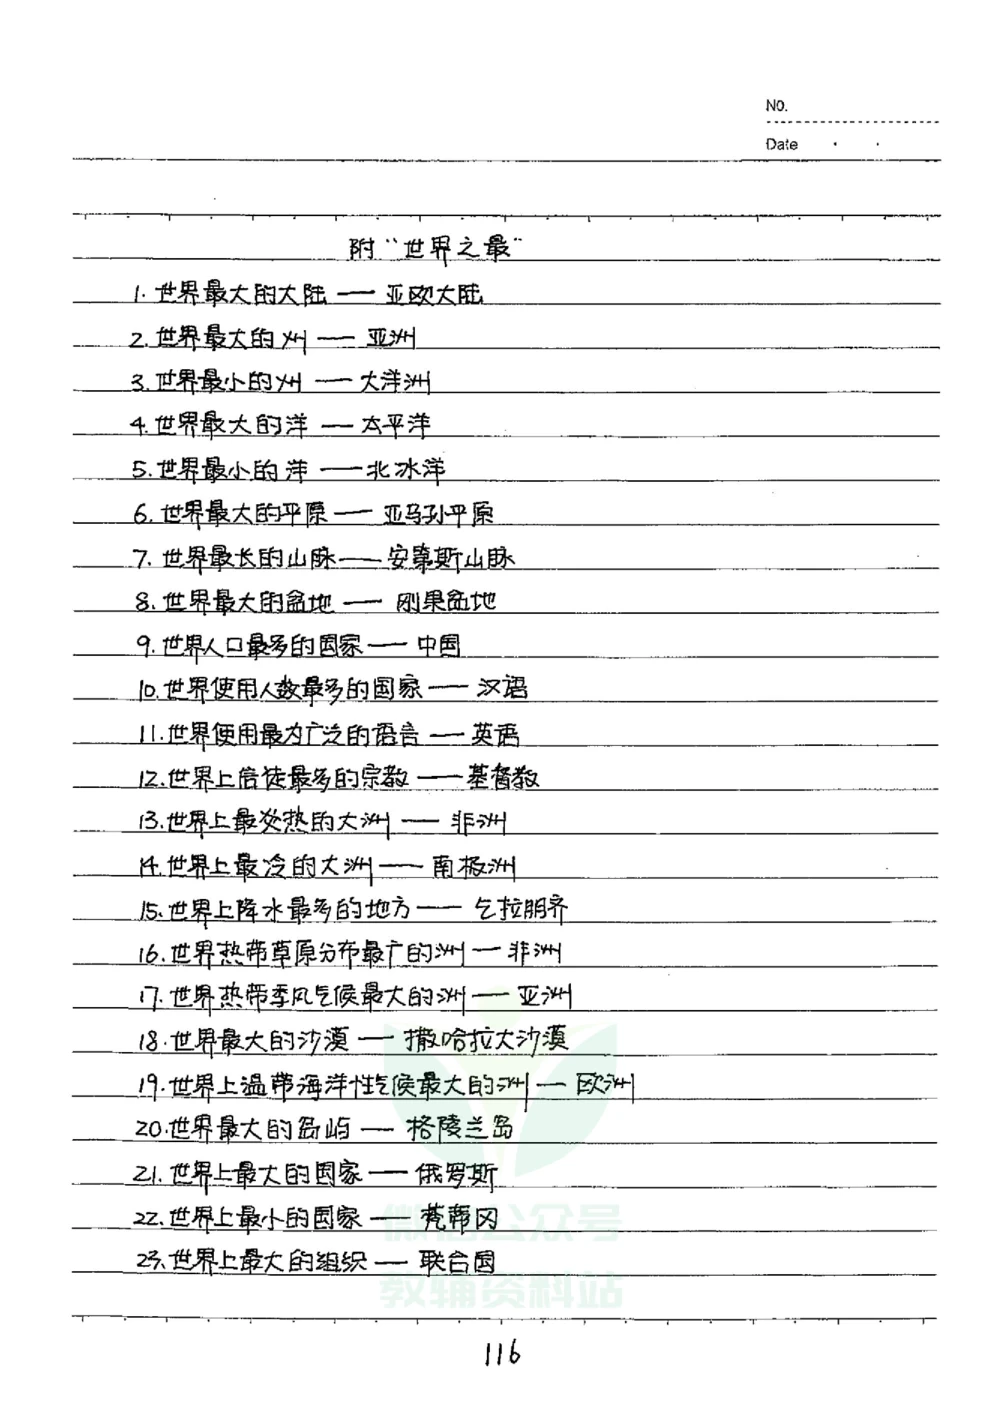 NO.
Date
附“世界之最”
1. 世界最大的大陆 — 亚欧大陆
2. 世界最大的州 — 亚洲
3. 世界最小的州 — 大洋洲
4. 世界最大的洋 — 太平洋
5. 世界最小的洋 — 北冰洋
6. 世界最大的平原 — 亚马孙平原
7. 世界最长的山脉 — 安第斯山脉
8. 世界最大的盆地 — 刚果盆地
9. 世界人口最多的国家 — 中国
10. 世界使用人数最多的国家 — 汉语
11. 世界使用最为广泛的语言 — 英语
12. 世界上信徒最多的宗教 — 基督教
13. 世界上最炎热的大洲 — 非洲
14. 世界上最冷的大洲 — 南极洲
15. 世界上降水最多的地方 — 乞拉朋齐
16. 世界热带草原分布最广的洲 — 非洲
17. 世界热带季风气候最大的洲 — 亚洲
18. 世界最大的沙漠 — 撒哈拉大沙漠
19. 世界上温带海洋性气候最大的洲 — 欧洲
20. 世界最大的岛屿 — 格陵兰岛
21. 世界上最大的国家 — 俄罗斯
22. 世界上最小的国家 — 梵蒂冈
23. 世界上最大的组织 — 联合国
微信公众号
教辅资料站
116